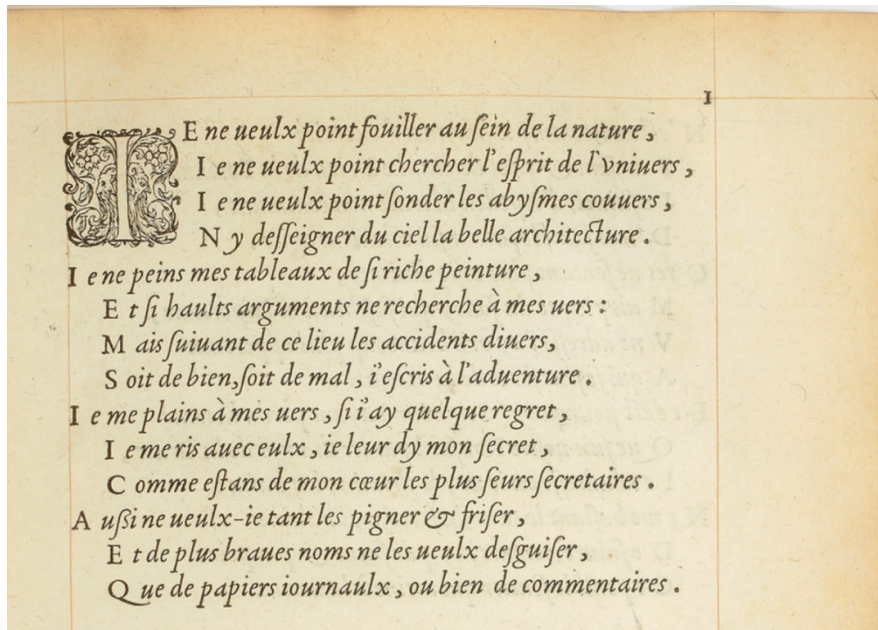 I
IE ne ueulx point fouiller au ſein de la nature,
Ie ne ueulx point chercher l'eſprit de l'vniuers,
Ie ne ueulx point ſonder les abyſmes couuers,
Ny deſſeigner du ciel la belle architecture.
Ie ne peins mes tableaux de ſi riche peinture,
Et ſi haults arguments ne recherche à mes uers:
Mais ſuiuant de ce lieu les accidents diuers,
Soit de bien, ſoit de mal, i'eſcris à l'aduenture.
Ie me plains à mes uers, ſi i'ay quelque regret,
Ie me ris auec eulx, ie leur dy mon ſecret,
Comme eſtans de mon cœur les plus ſeurs ſecretaires.
Außi ne ueulx-ie tant les pigner & friſer,
Et de plus braues noms ne les ueulx deſguiſer,
Que de papiers iournaulx, ou bien de commentaires.